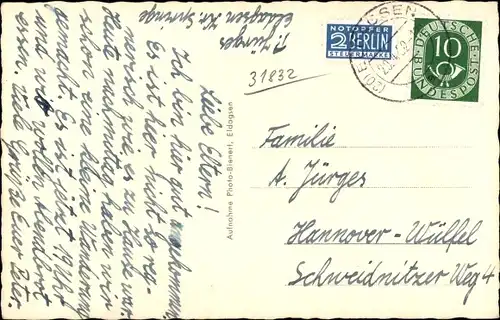 P. Jürges
Eldagsen Kr. Springe
Liebe Eltern!
Ich bin hier gut angekommen.
Es ist hier nicht so reg-
nerisch wie es zu Hause war.
Heute nachmittag haben wir
schon eine kleine Wanderung
gemacht. Es ist jetzt 19 Uhr
und wir wollen Abendbrot
essen. Viele Grüße Euer Peter.
Aufnahme Photo-Bienert, Eldagsen
31832
NOTOPFER
2 BERLIN
STEUERMARKE
DEUTSCHE
BUNDESPOST
10
Familie
A. Jürges
Hannover-Wülfel
Schweidnitzer Weg 4